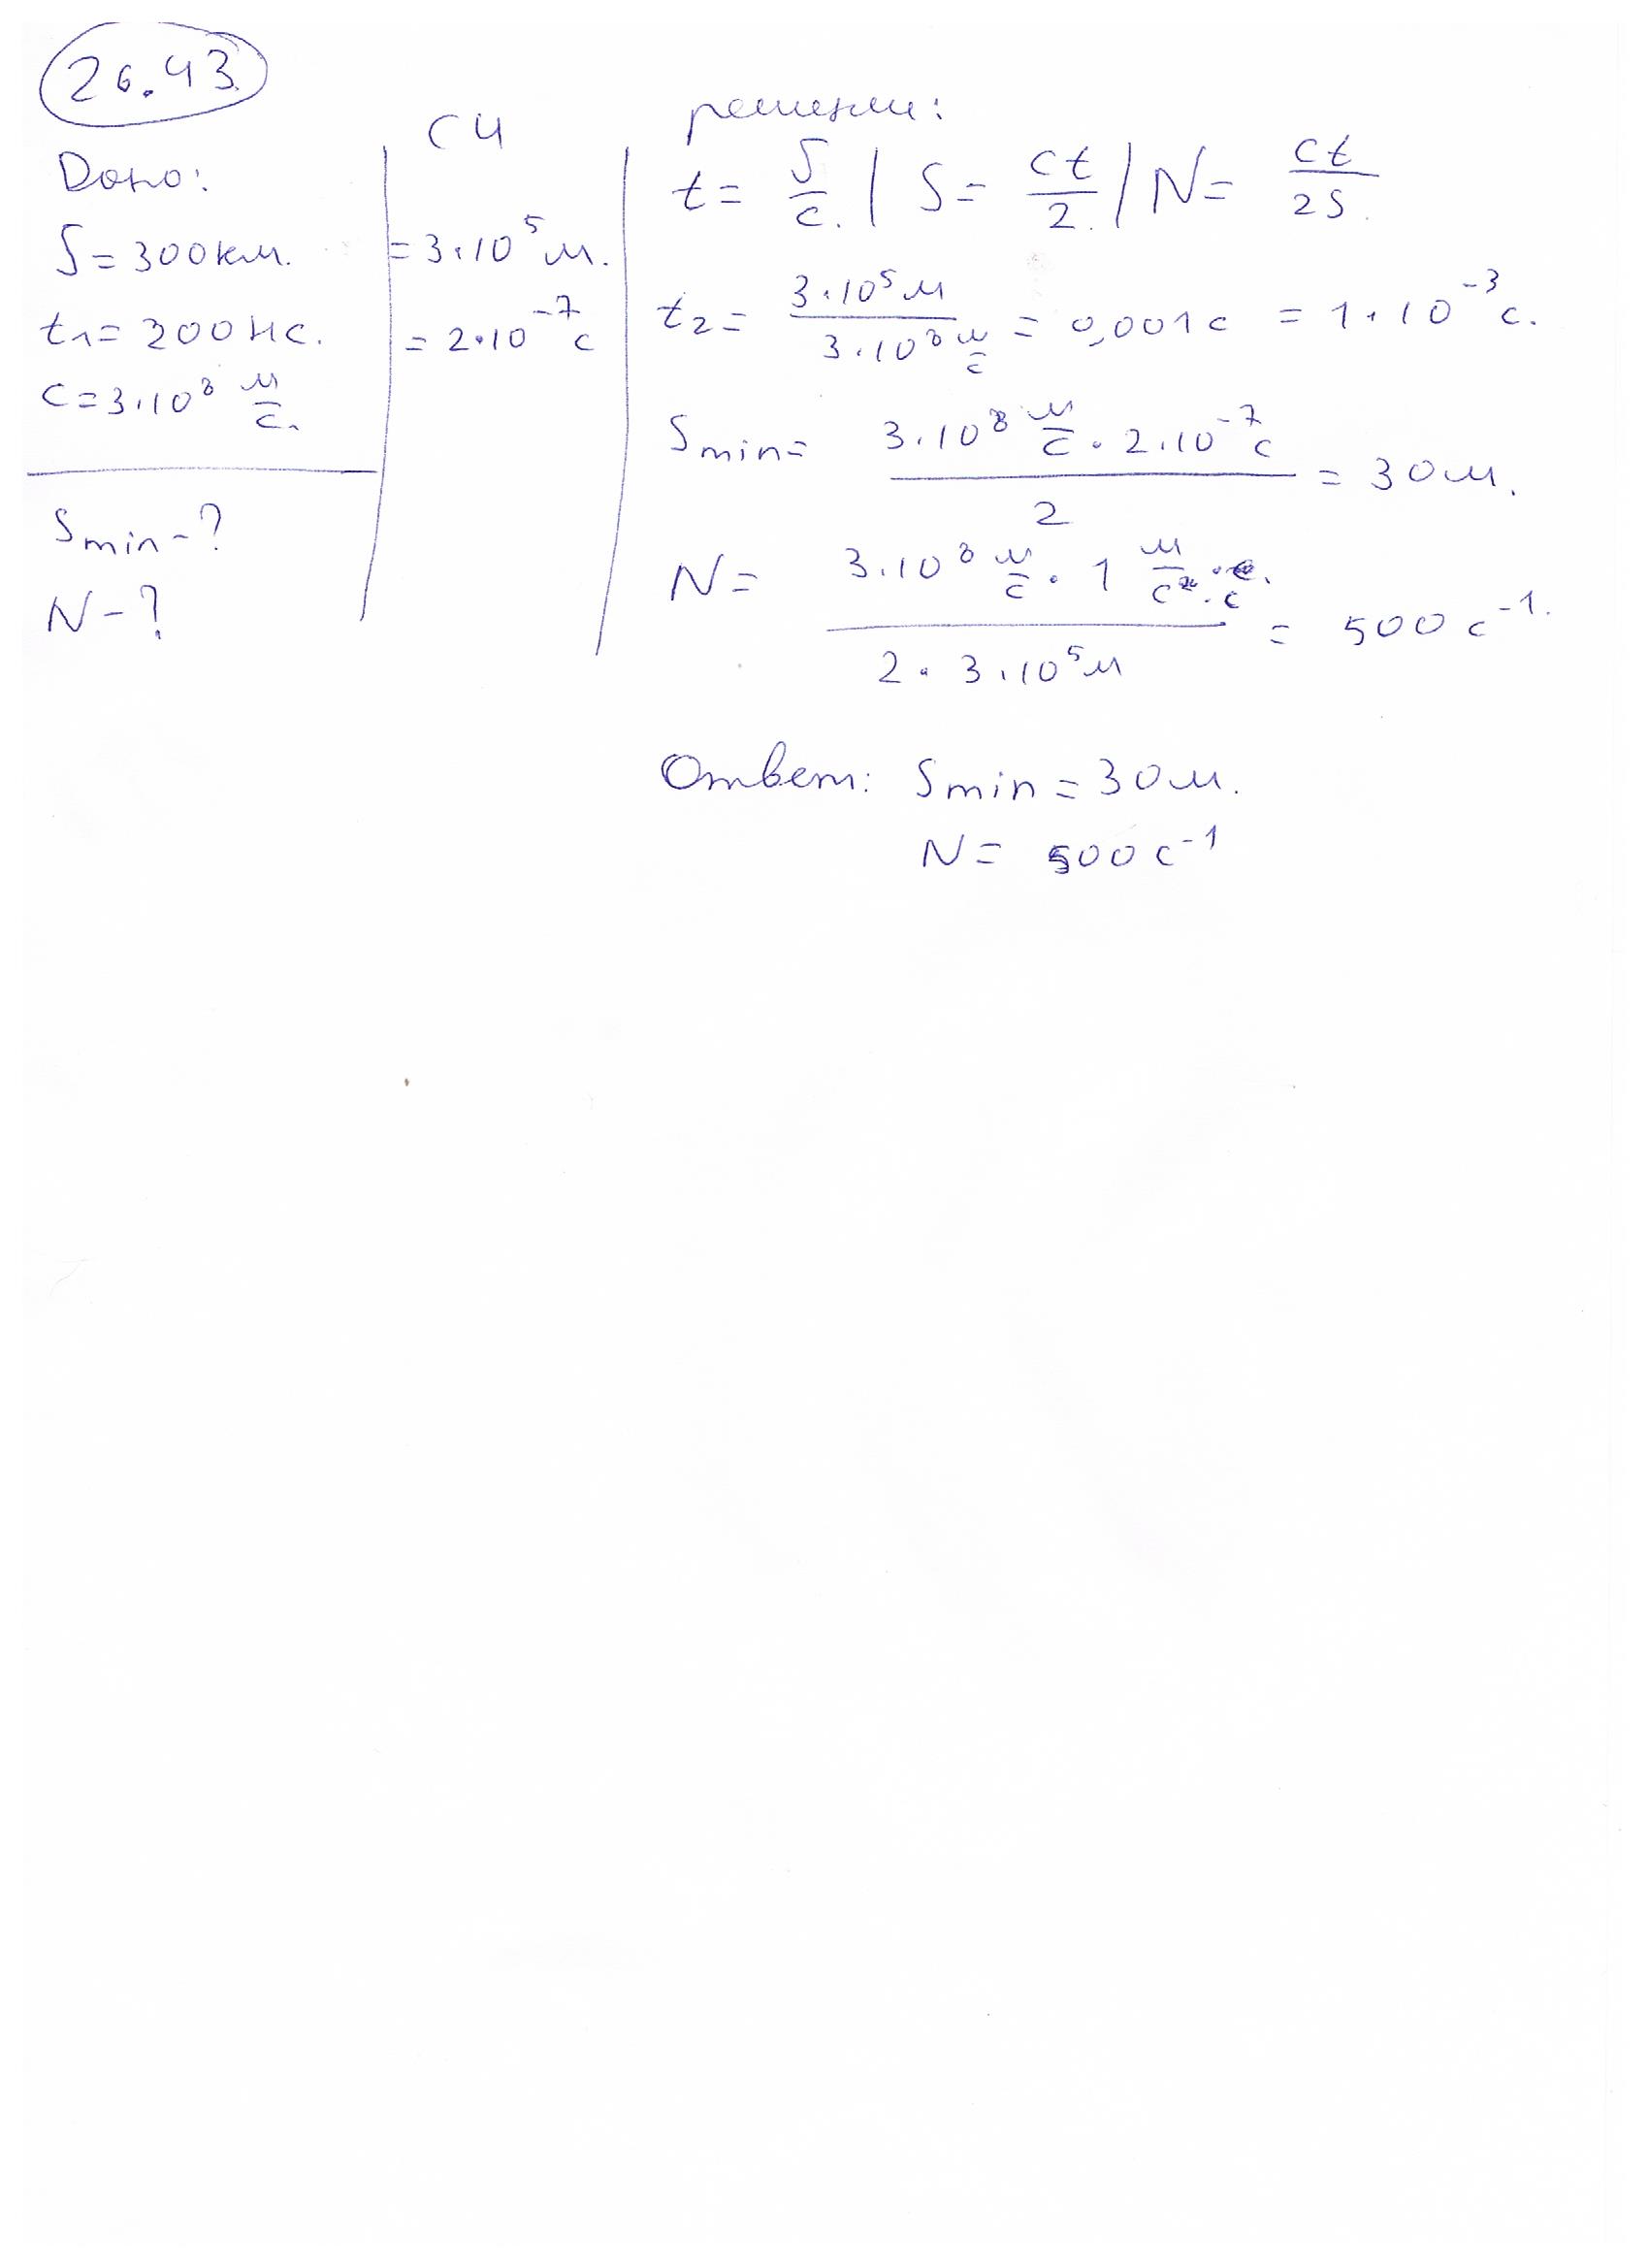 26.43
Дано:
S = 300 км.
t₁ = 200 нс.
c = 3·10⁸ м/с.
Smin - ?
N - ?
СИ
= 3·10⁵ м.
= 2·10⁻⁷ с
решение:
t = S/c. | S = ct/2. | N = ct/2S.
t₂ = 3·10⁵ м / 3·10⁸ м/с = 0,001 с = 1·10⁻³ с.
Smin = 3·10⁸ м/с · 2·10⁻⁷ с / 2 = 30 м.
N = 3·10⁸ м/с · 1 / 2 · 3·10⁵ м = 500 с⁻¹.
Ответ: Smin = 30 м.
N = 500 с⁻¹